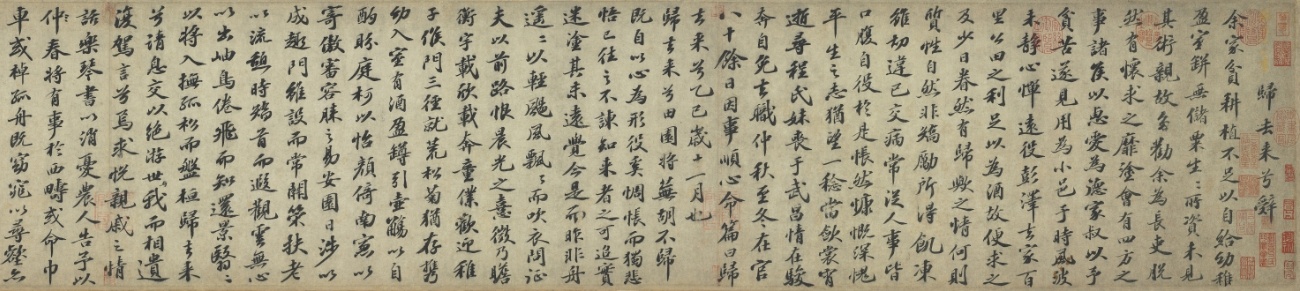 歸去来兮辭
余家貧耕植不足以自給幼稚
盈室缾無儲粟生〻所資未見
其術親故多勸余為長吏脫
然有懷求之靡塗會有四方之
事諸侯以惠愛為德家叔以予
貧苦遂見用為小邑于時風波
未静心憚遠役彭澤去家百
里公田之利足以為酒故便求之
及少日眷然有歸歟之情何則
質性自然非矯勵所得飢凍
雖切違己交病常從人事皆
口腹自役於是悵然慷慨深愧
平生之志猶望一稔當斂裳宵
逝尋程氏妹喪于武昌情在駿
奔自免去職仲秋至冬在官
八十餘日因事順心命篇曰歸
去来兮乙巳歲十一月也
歸去来兮田園將蕪胡不歸
既自以心為形役奚惆悵而獨悲
悟已往之不諫知来者之可追實
迷塗其未遠覺今是而昨非舟
遥〻以輕颺風飄〻而吹衣問征
夫以前路恨晨光之熹微乃瞻
衡宇載欣載奔童僕歡迎稚
子候門三徑就荒松菊猶存攜
幼入室有酒盈罇引壺觴以自
酌眄庭柯以怡顔倚南窻以
寄傲審容膝之易安園日涉以
成趣門雖設而常關策扶老
以流憩時矯首而遐觀雲無心
以出岫鳥倦飛而知還景翳〻
以將入撫孤松而盤桓歸去来
兮請息交以絶游世我而相遺
復駕言兮焉求悦親戚之情
話樂琴書以消憂農人告予以
仲春將有事於西疇或命巾
車或棹孤舟既窈窕以尋壑亦